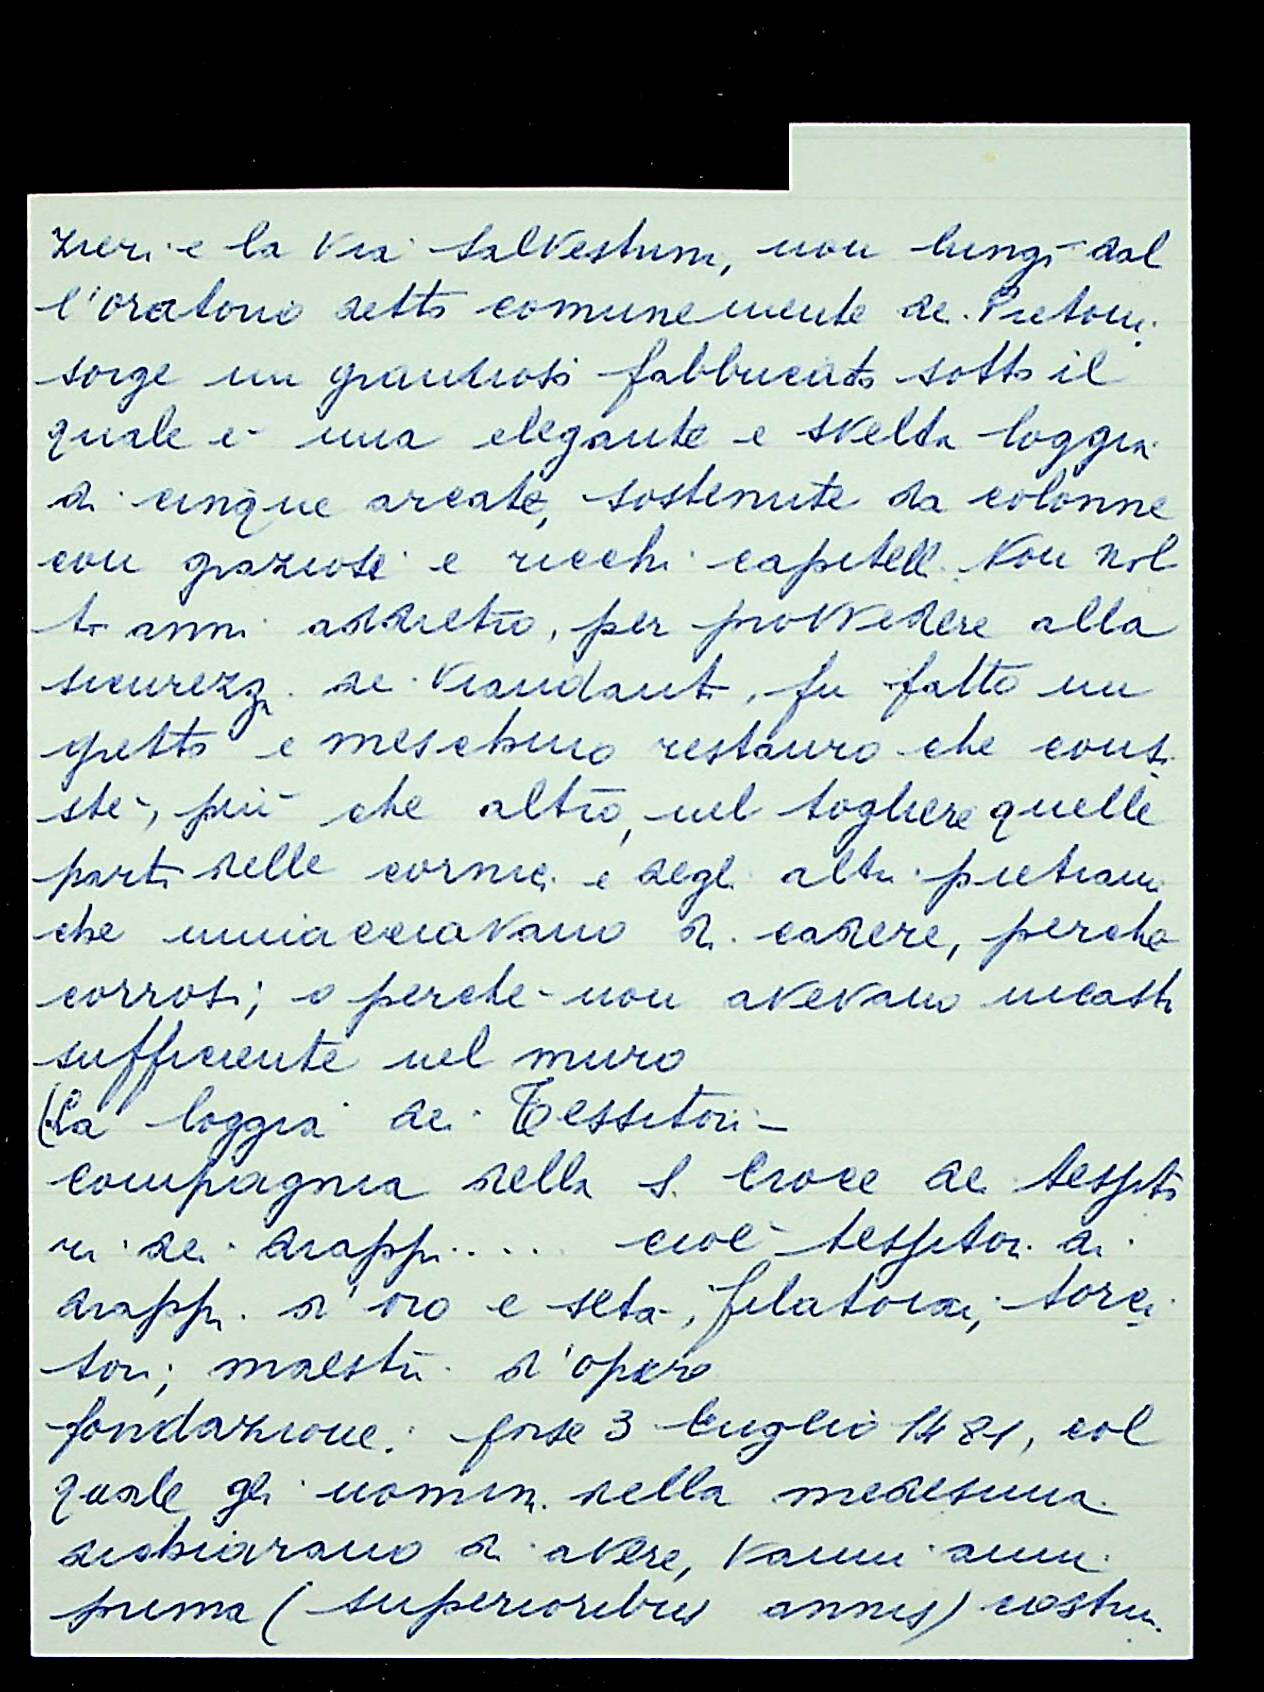 zieri e la Via Salvestrini, non lungi dal
l'oratorio detto comunemente dei Pretoni
sorge un grandioso fabbricato sotto il
quale è una elegante e svelta loggia
di cinque arcate, sostenute da colonne
con graziosi e ricchi capitelli. Non mol
ti anni addietro, per provvedere alla
sicurezza dei viandanti, fu fatto un
gretto e meschino restauro che consi
stè, più che altro, nel togliere quelle
parti delle cornici e degli altri pietrami
che minacciavano di cadere, perchè
corrosi; o perchè non avevano incastro
sufficiente nel muro
(La loggia dei Tessitori -
Compagnia della S. Croce dei tessito
ri dei drappi.... cioè tessitori di
drappi d'oro e seta, filatoiai, torci
tori; maestri d'opera
fondazione: forse 3 luglio 1481, col
quale gli uomini della medesima
dichiarano di avere, vanni anni
prima (superioribus annis) costrui